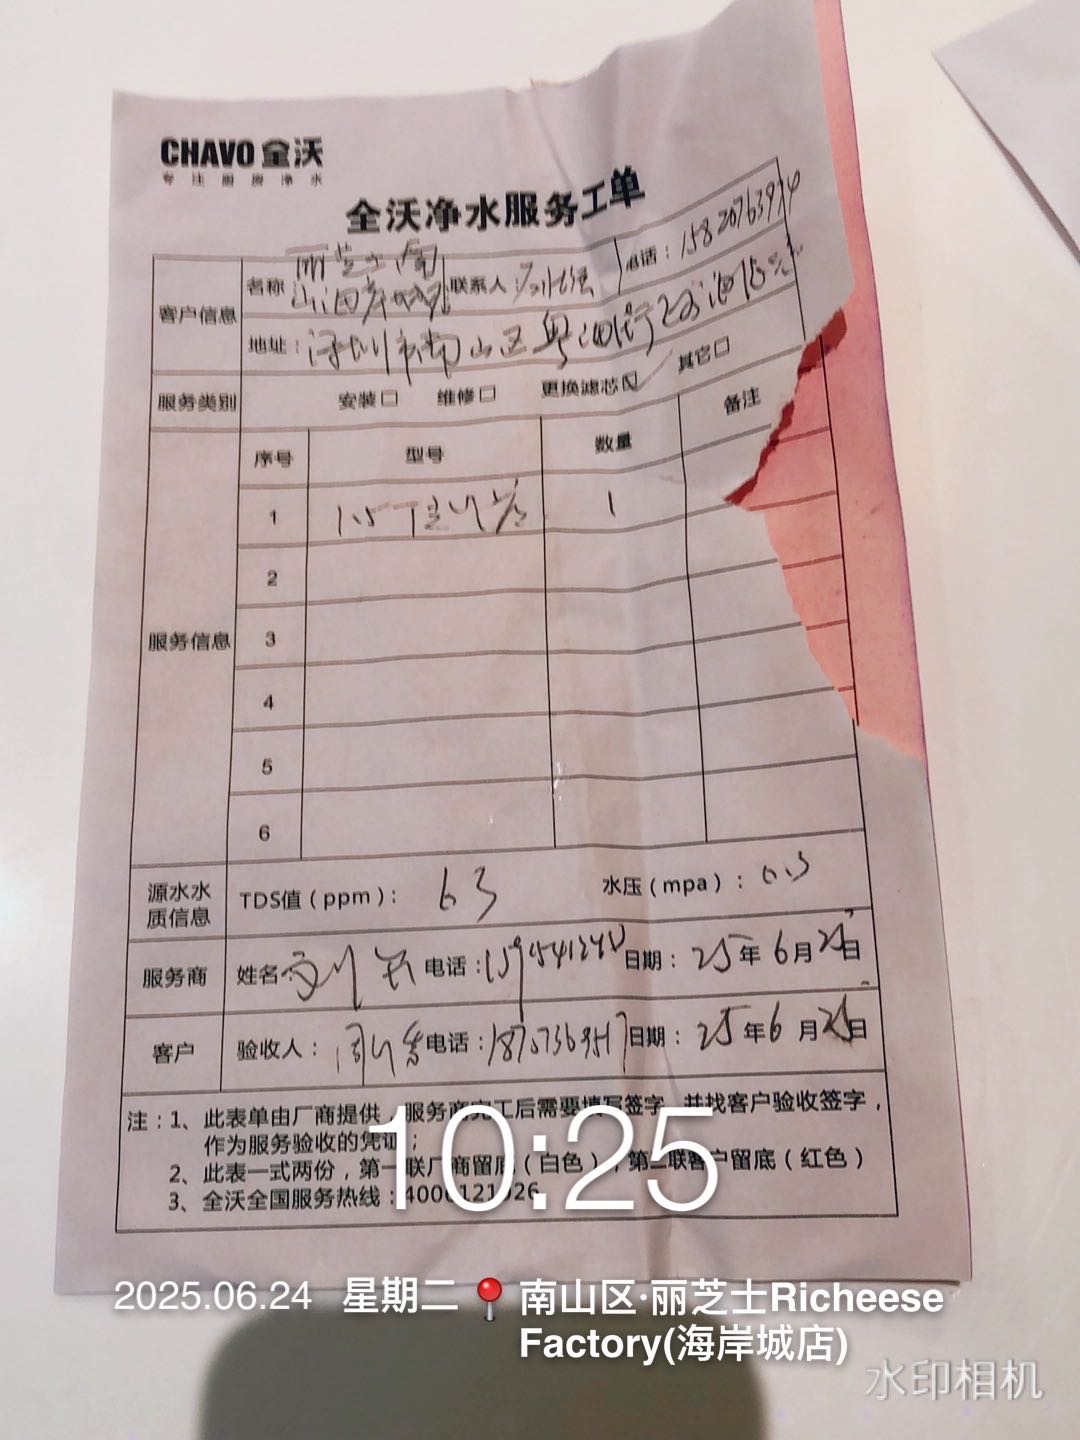 CHAVO 全沃
专注厨房净水
全沃净水服务工单
客户信息 名称 丽芝士南山海岸城店 联系人: 电话: 15820763974
地址: 深圳市南山区粤海街
服务类别 安装□ 维修□ 更换滤芯☑ 其它□
服务信息 序号 型号 数量 备注
1 1
2
3
4
5
6
源水水质信息 TDS值(ppm): 63 水压(mpa): 0.3
服务商 姓名 电话: 日期: 25年6月 日
客户 验收人: 电话: 日期: 25年6月 日
注:1、此表单由厂商提供,服务商完工后需要填写签字,并找客户验收签字,
作为服务验收的凭证;
2、此表一式两份,第一联厂商留底(白色),第二联客户留底(红色)
3、全沃全国服务热线:4006121026
10:25
2025.06.24 星期二 南山区·丽芝士Richeese
Factory(海岸城店)
水印相机